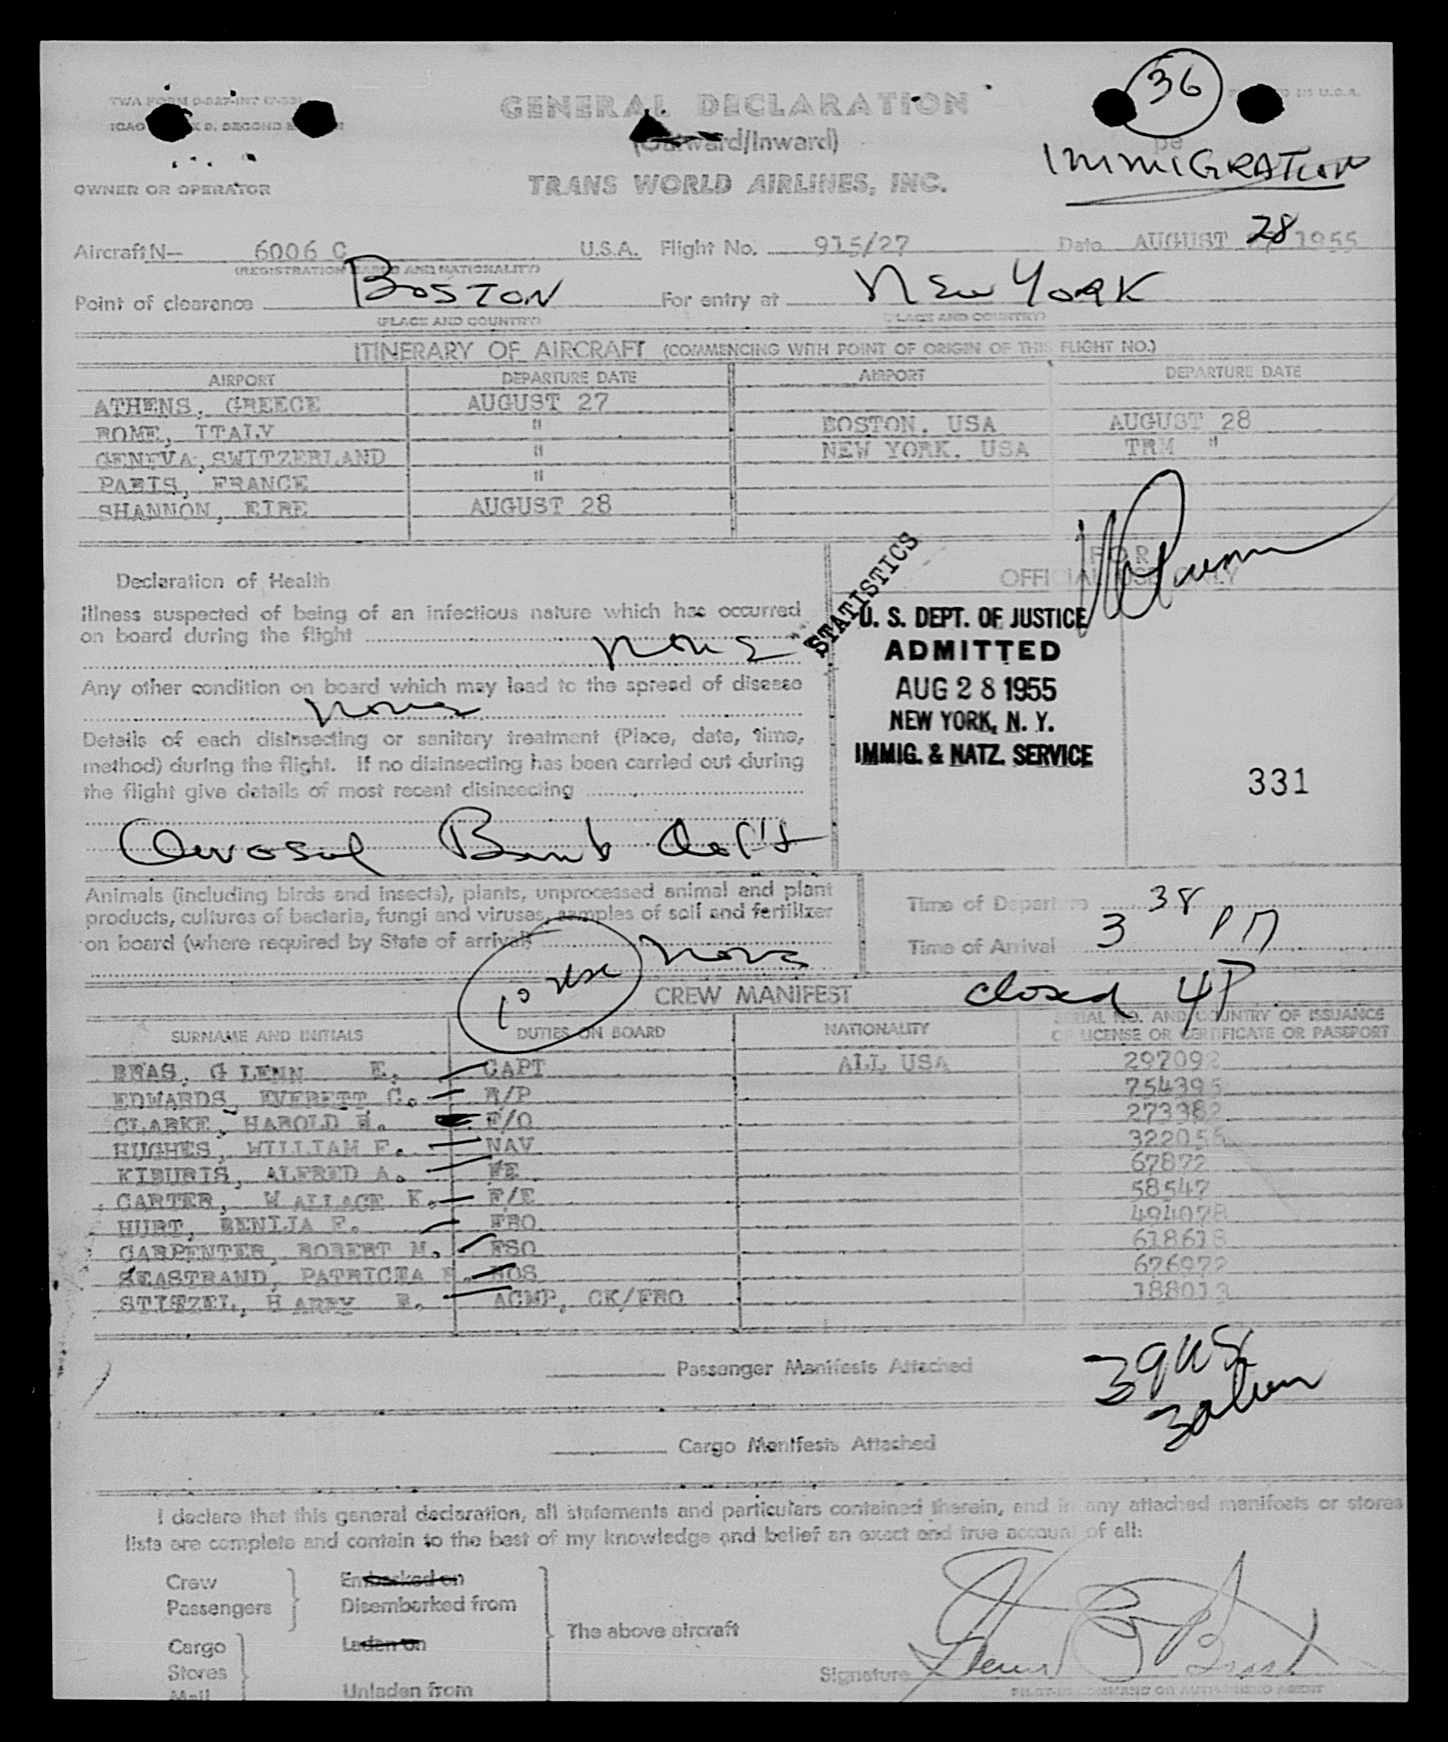 36
GENERAL DECLARATION
(Outward/Inward)
IMMIGRATION
OWNER OR OPERATOR
TRANS WORLD AIRLINES, INC.
Aircraft N- 6006 C U.S.A. Flight No. 915/27 Date AUGUST 28 1955
(REGISTRATION MARKS AND NATIONALITY)
Point of clearance BOSTON For entry at NEW YORK
(PLACE AND COUNTRY) (PLACE AND COUNTRY)
ITINERARY OF AIRCRAFT (COMMENCING WITH POINT OF ORIGIN OF THIS FLIGHT NO.)
AIRPORT DEPARTURE DATE AIRPORT DEPARTURE DATE
ATHENS, GREECE AUGUST 27
ROME, ITALY " BOSTON. USA AUGUST 28
GENEVA, SWITZERLAND " NEW YORK. USA TRM "
PARIS, FRANCE "
SHANNON, EIRE AUGUST 28
STATISTICS
FOR
OFFICIAL USE ONLY
Declaration of Health
Illness suspected of being of an infectious nature which has occurred
on board during the flight none
Any other condition on board which may lead to the spread of disease
none
Details of each disinsecting or sanitary treatment (Place, date, time,
method) during the flight. If no disinsecting has been carried out during
the flight give details of most recent disinsecting
U. S. DEPT. OF JUSTICE
ADMITTED
AUG 28 1955
NEW YORK, N. Y.
IMMIG. & NATZ. SERVICE
331
Bomb
Animals (including birds and insects), plants, unprocessed animal and plant
products, cultures of bacteria, fungi and viruses, samples of soil and fertilizer
on board (where required by State of arrival) none
Time of Departure
Time of Arrival 3 38 PM
closed 4P
CREW MANIFEST
SURNAME AND INITIALS DUTIES ON BOARD NATIONALITY SERIAL NO. AND COUNTRY OF ISSUANCE
OF LICENSE OR CERTIFICATE OR PASSPORT
GLENN E. CAPT ALL USA 297092
EDWARDS, EVERETT C. R/P 754395
CLARKE, HAROLD H. F/O 273382
HUGHES, WILLIAM F. NAV 322056
KIBURIS, ALFRED A. FE 67872
CARTER, WALLACE K. F/E 58547
HURT, BENIJA F. FRO 494078
CARPENTER, ROBERT M. FSO 618618
SEASTRAND, PATRICIA HOS 676972
STITZEL, HARRY R. ACMP, CK/FRO 188013
Passenger Manifests Attached
39 US
3 alien
Cargo Manifests Attached
I declare that this general declaration, all statements and particulars contained therein, and in any attached manifests or stores
lists are complete and contain to the best of my knowledge and belief an exact and true account of all:
Crew Embarked on
Passengers Disembarked from
The above aircraft
Cargo Laden on
Stores
Mail Unladen from
Signature
PILOT-IN-COMMAND OR AUTHORIZED AGENT